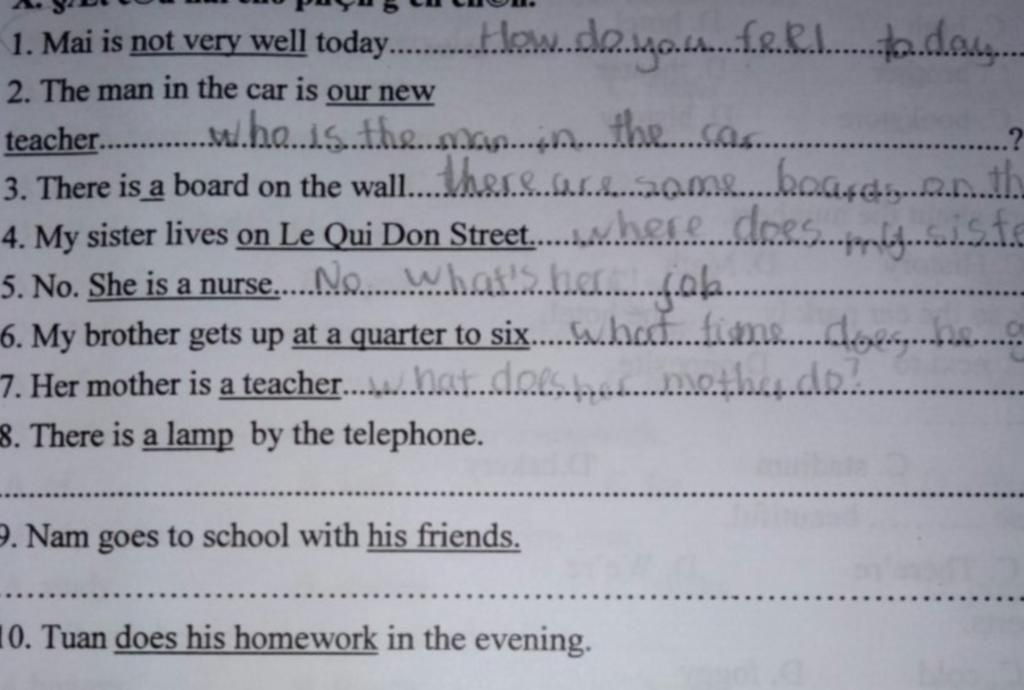 1. Mai is not very well today........How do you feel today
2. The man in the car is our new
teacher............who is the man in the car..............................?
3. There is a board on the wall....there are some boards on th
4. My sister lives on Le Qui Don Street.....where does my siste
5. No. She is a nurse.....No. What's her job
6. My brother gets up at a quarter to six.....what time does he g
7. Her mother is a teacher....what does her mother do?
8. There is a lamp by the telephone.
9. Nam goes to school with his friends.
10. Tuan does his homework in the evening.